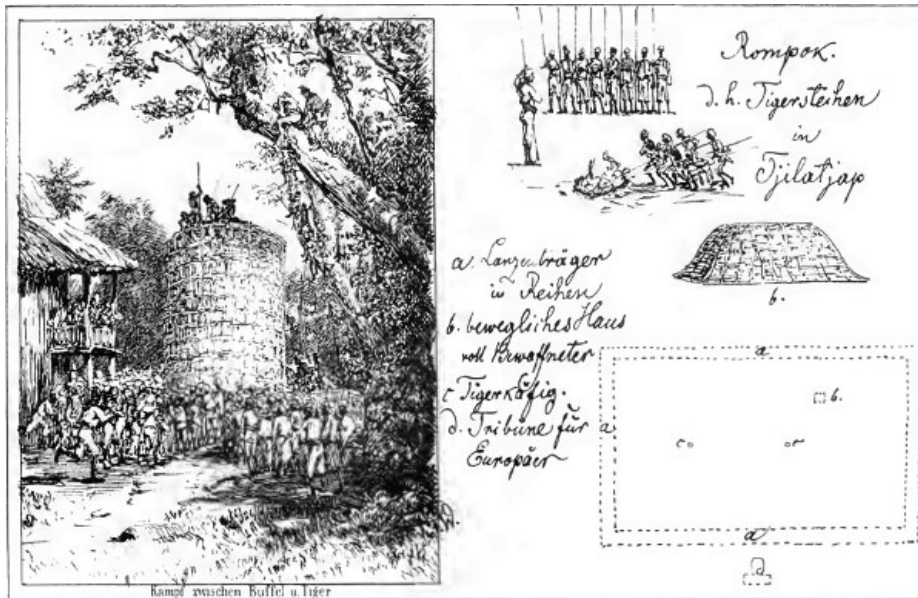 Kampf zwischen Buffel u. Tiger
Rompok.
d. h. Tigerstechen
in
Tjilatjap
a. Lanzenträger
in Reihen
b. bewegliches Haus
voll Bewaffneter
c Tigerkäfig.
d. Tribüne für
Europäer
b.
a
b.
a
c
c
a
d